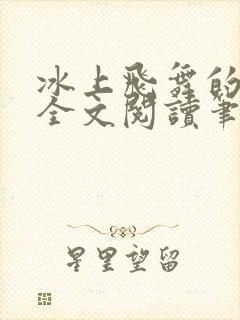 冰上飛舞的
全文閱讀筆
星里望留